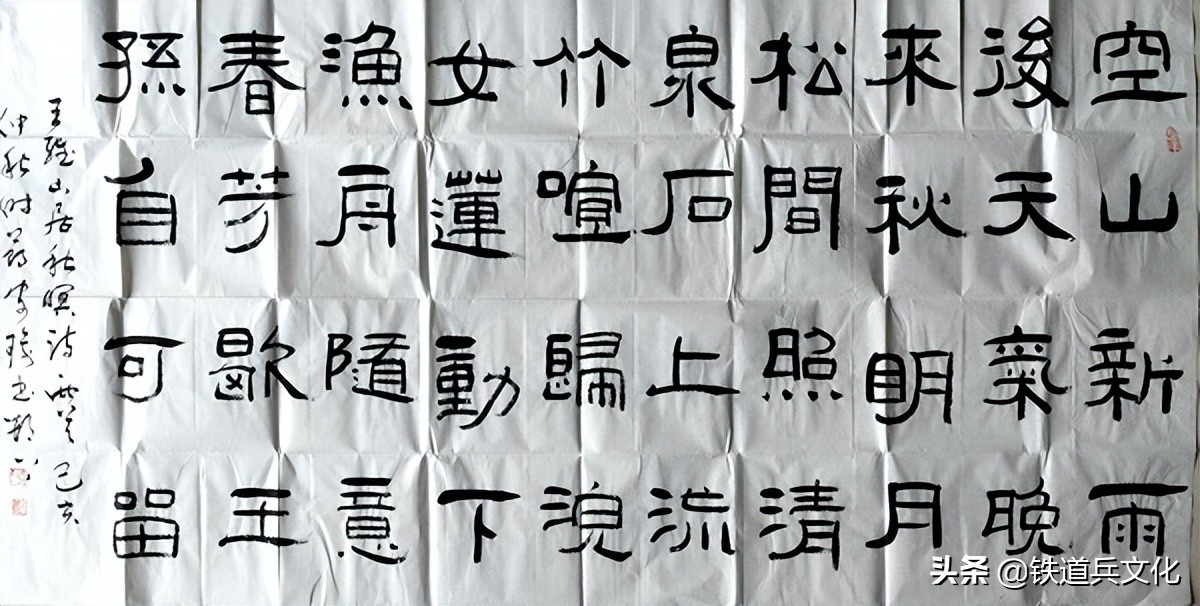 空山新雨
後天氣晚
來秋明月
松間照清
泉石上流
竹喧歸浣
女蓮動下
漁舟隨意
春芳歇王
孫自可留
王維山居秋暝詩 己亥
仲秋時節
头条 @铁道兵文化